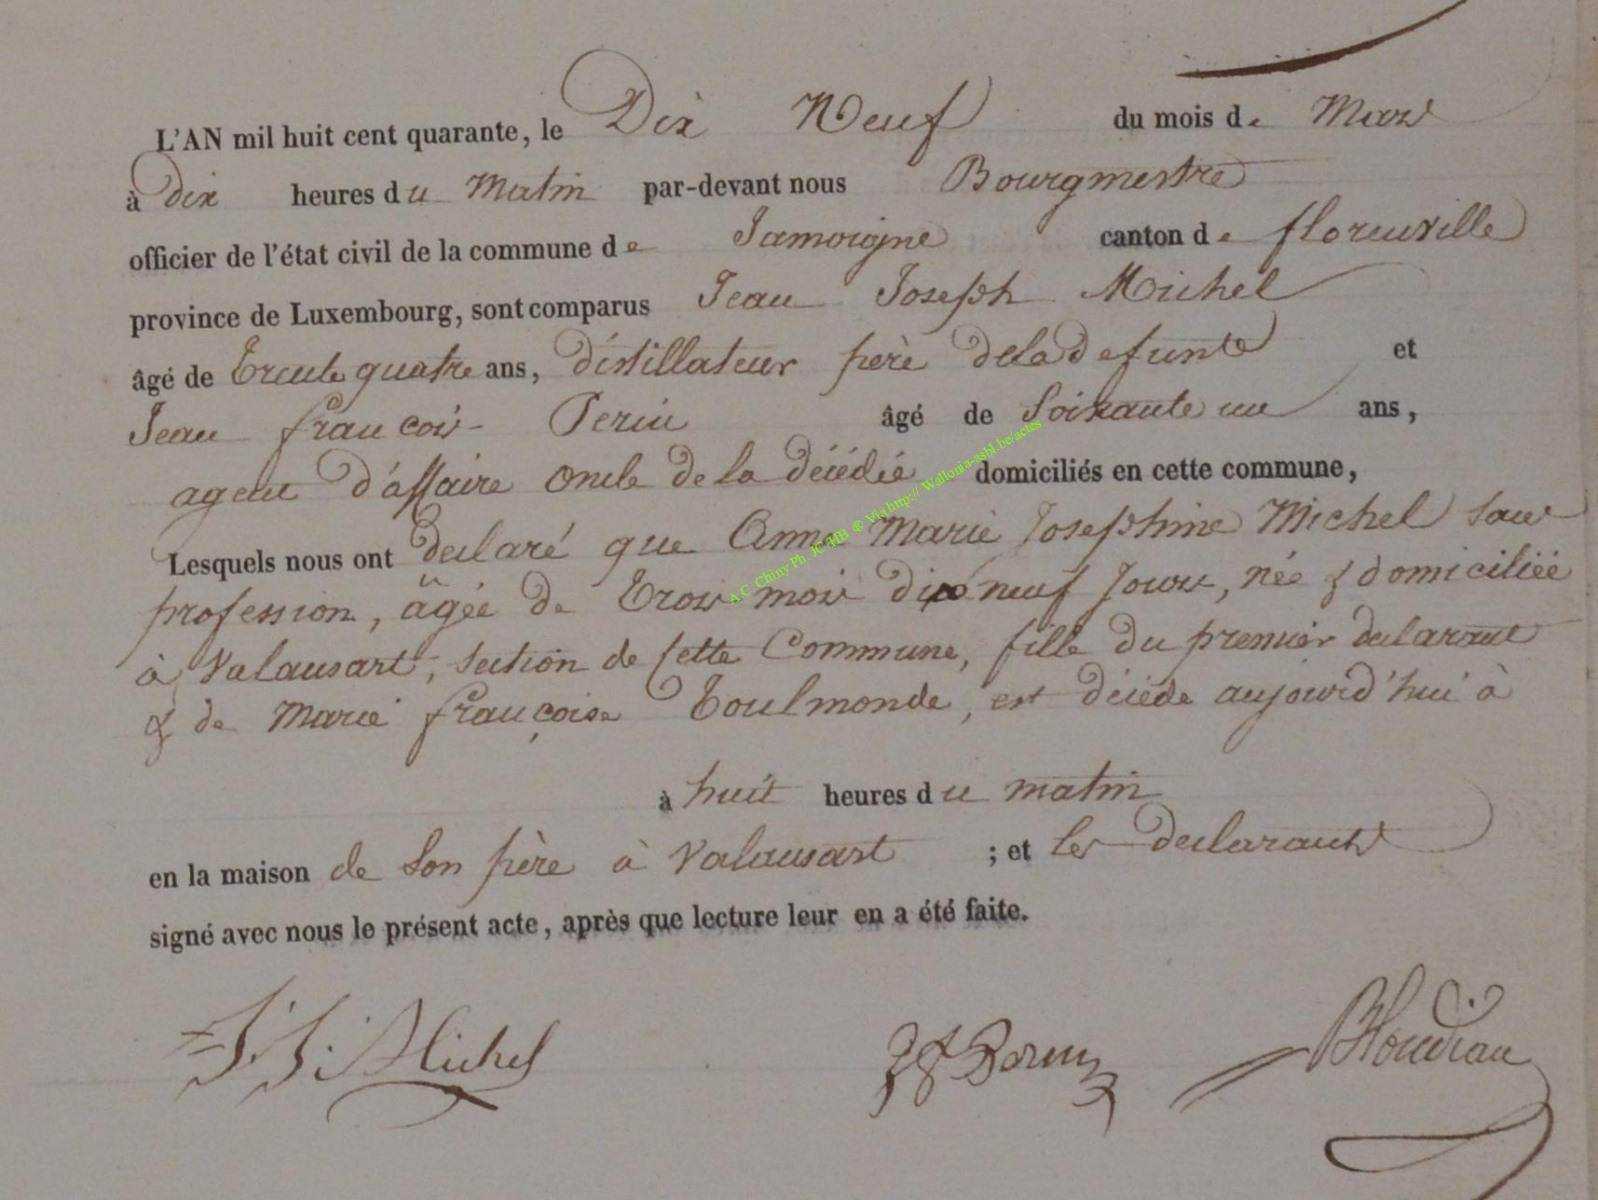 L'AN mil huit cent quarante, le Dix Neuf du mois de Mars
à dix heures du Matin par-devant nous Bourgmestre
officier de l'état civil de la commune de Jamoigne canton de florenville
province de Luxembourg, sont comparus Jean Joseph Michel
âgé de Trente quatre ans, distillateur père dela defunte et
Jean françois Perin âgé de Soixante un ans,
agent d'affaire oncle de la décédée domiciliés en cette commune,
Lesquels nous ont declaré que Anne Marie Josephine Michel sans
profession, âgée de Trois mois dix neuf Jours, née & domiciliée
à Valansart, section de cette Commune, fille du premier declarant
& de Marie françoise Toulmonde, est décédé aujourd'hui à
à huit heures du matin
en la maison de son père à Valansart ; et les declarants
signé avec nous le présent acte, après que lecture leur en a été faite.
J. J. Michel JfPerin
A C Chiny Ph JC MB ® Via http:// Wallonia-asbl.be/actes